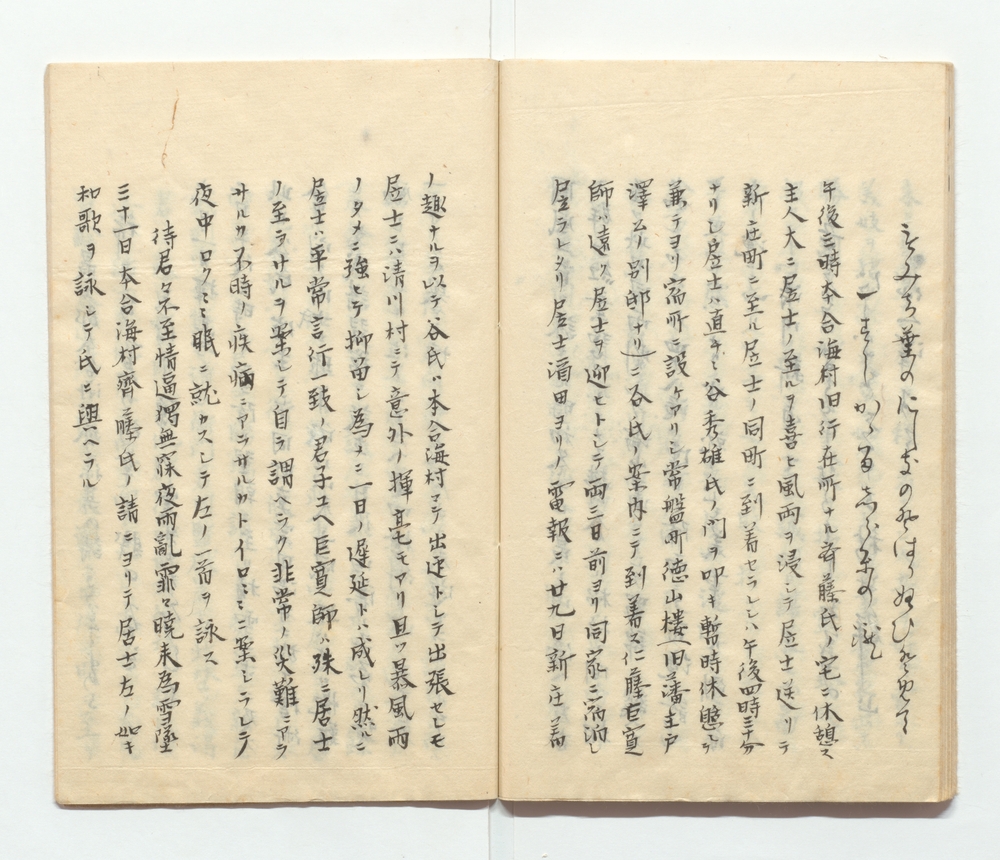 もみち葉のにしきのそはうぬひそめて
一すしかゝる志ら糸の瀧
午後三時本合海村旧行在所ナル斉藤氏ノ宅ニ休憩ス
主人大ニ居士ノ至ルヲ喜ヒ風雨ヲ浸シテ居士送リテ
新庄町ニ至ル居士ノ同町ニ到着セラレシハ午後四時三十分
ナリシ居士ハ直チニ谷秀雄氏ノ門ヲ叩キ暫時休憩シテ
兼テヨリ宿所ニ設ケアリシ常盤町徳山楼(旧藩主戸
澤公ノ別邸ナリ)ニ谷氏ノ案内ニテ到着ス仁藤巨寛
師ハ遠ク居士ヲ迎ヒトシテ両三日前ヨリ同家ニ宿泊シ
居ラレタリ居士酒田ヨリノ電報ニハ廿九日新庄着
ノ趣ナルヲ以テ谷氏ハ本合海村マテ出迎トシテ出張セシモ
居士ニハ清川村ニテ意外ノ揮亳モアリ且ツ暴風雨
ノタメニ強ヒテ抑留シ為メニ一日ノ遅延トハ成レリ然ルニ
居士ハ平常言行一致ノ君子ユヘ巨寛師ハ殊ニ居士
ノ至ラサルヲ案シテ自ラ謂ヘラク非常ノ災難ニアラ
サルカ不時ノ疾病ニアラサルカトイロミミニ案シラレテ
夜中ロクミミ眠ニ就カスシテ左ノ一首ヲ詠ス
待君々不至情逼溷無寐夜雨亂霏々暁来為雪墜
三十一日本合海村齊藤氏ノ請ニヨリテ居士左ノ如キ
和歌ヲ詠シテ氏ニ與ヘラル